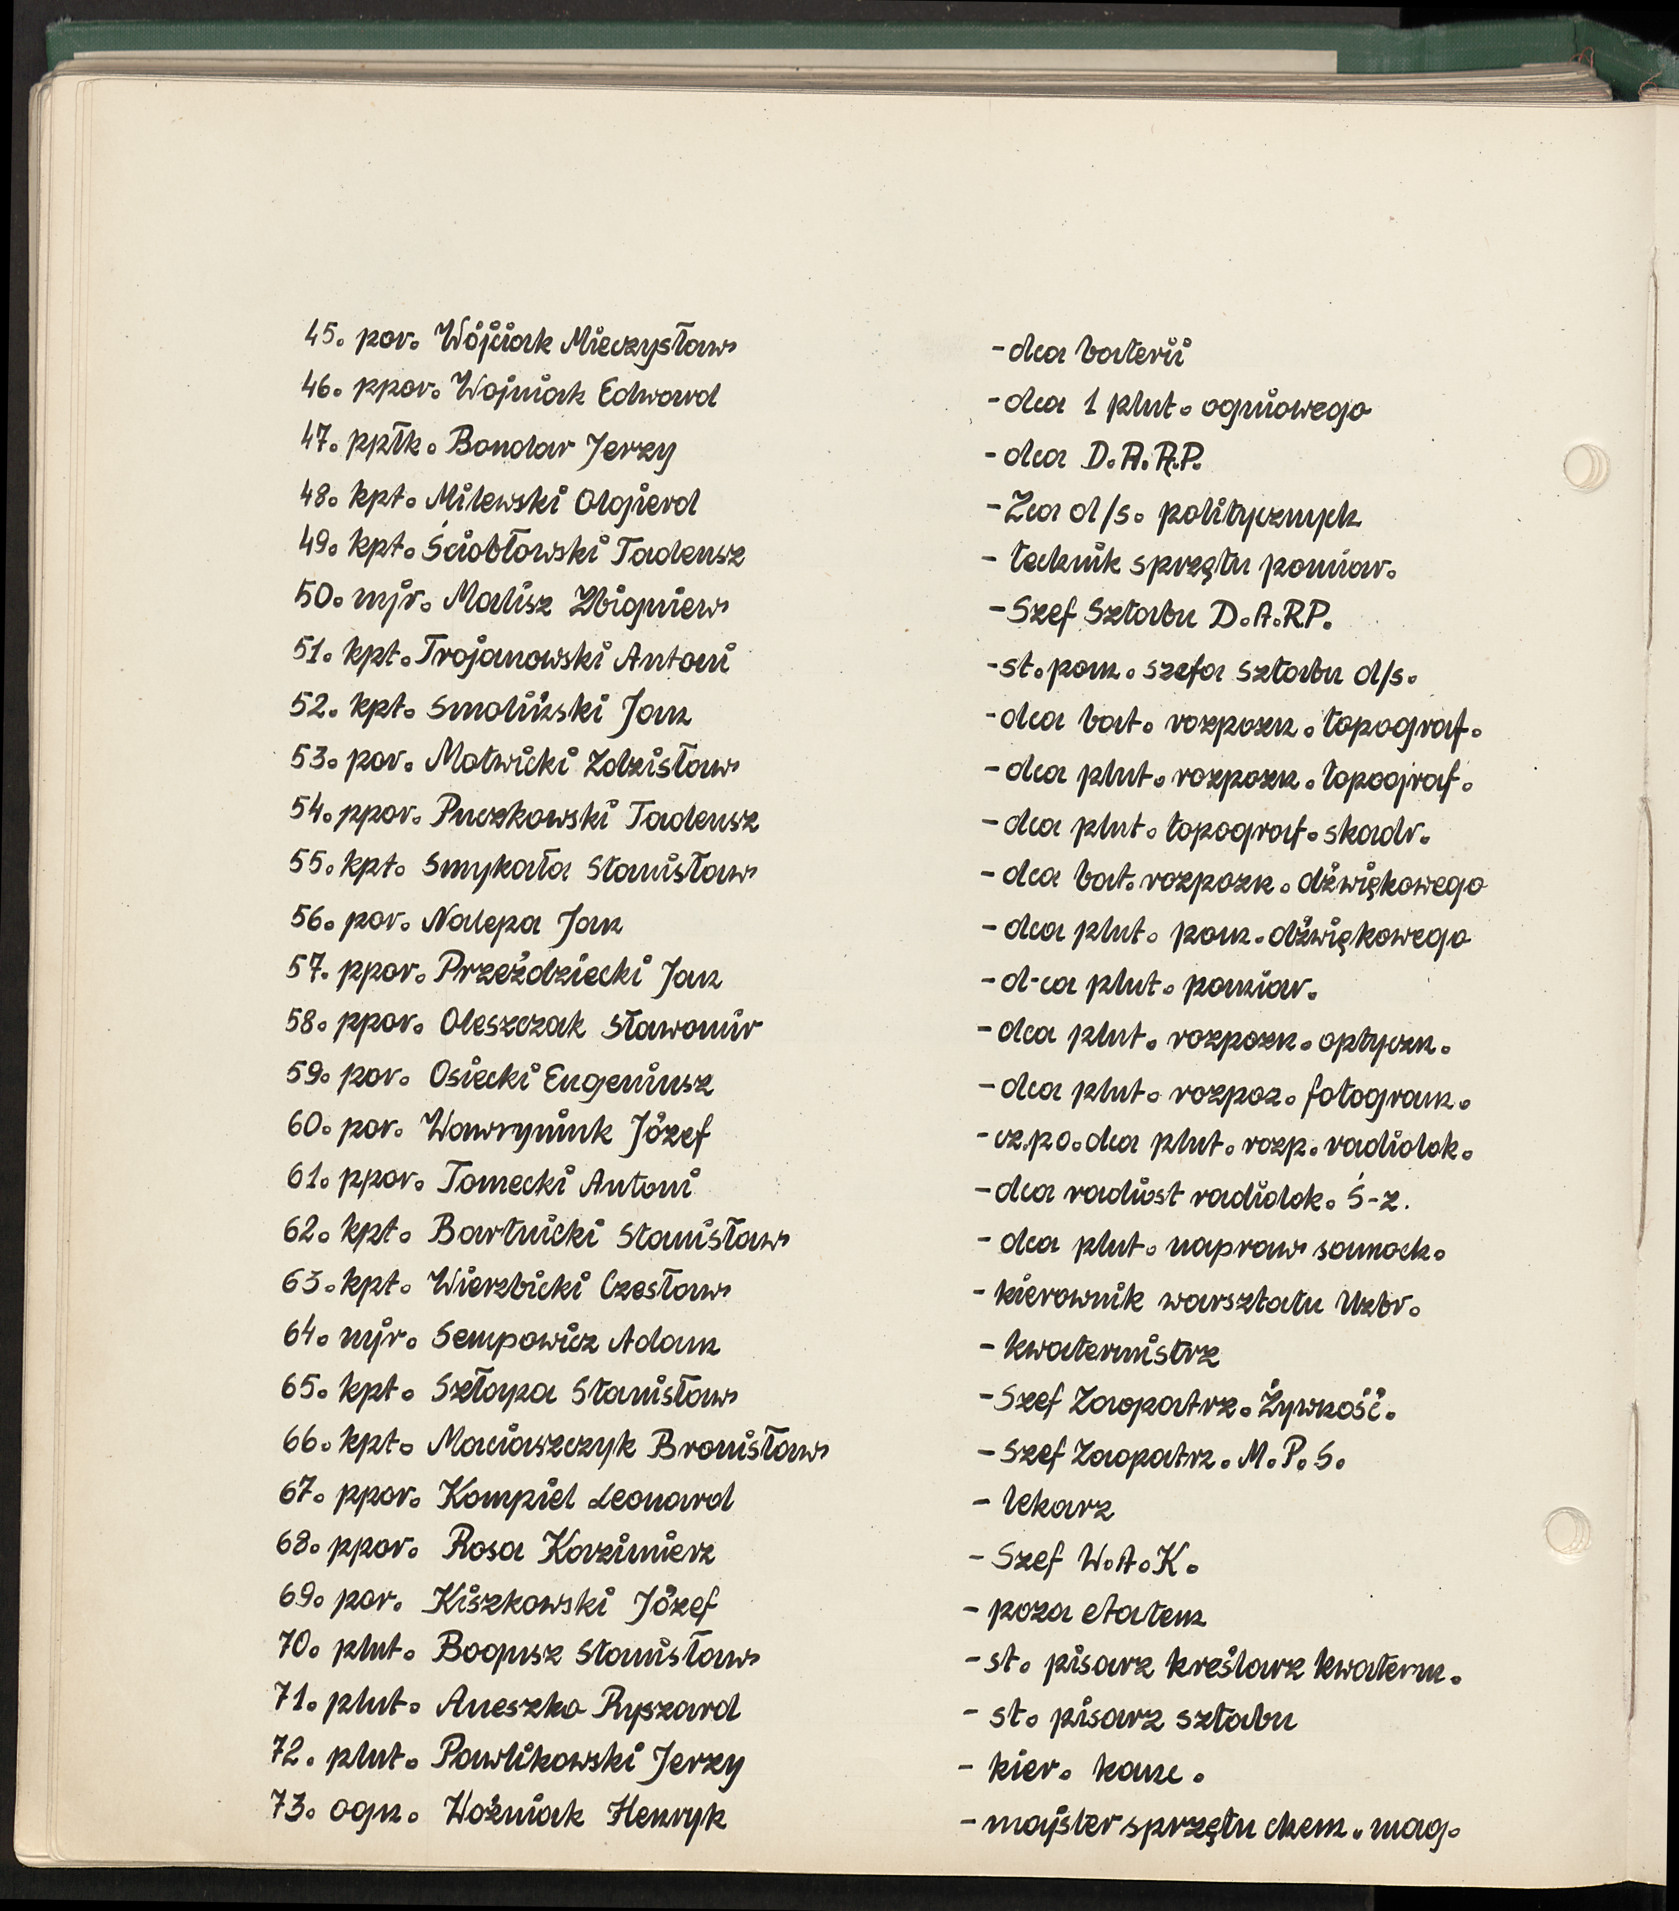 45. por. Wójciak Mieczysław - dca baterii
46. ppor. Wojniak Edward - dca 1 plut. ogniowego
47. ppłk. Bondar Jerzy - dca D.A.R.P.
48. kpt. Milewski Olgierd - Zca d/s. politycznych
49. kpt. Ściobłowski Tadeusz - technik sprzętu pomiar.
50. mjr. Malisz Zbigniew - Szef Sztabu D.A.RP.
51. kpt. Trojanowski Antoni - st. pom. szefa sztabu d/s.
52. kpt. Smoliński Jan - dca bat. rozpozn. topograf.
53. por. Motwicki Zdzisław - dca plut. rozpozn. topograf.
54. ppor. Puczkowski Tadeusz - dca plut. topograf. skadr.
55. kpt. Smykała Stanisław - dca bat. rozpozn. dźwiękowego
56. por. Nalepa Jan - dca plut. pom. dźwiękowego
57. ppor. Przeździecki Jan - d-ca plut. pomiar.
58. ppor. Oleszczak Sławomir - dca plut. rozpozn. optyczn.
59. por. Osiecki Eugeniusz - dca plut. rozpoz. fotogram.
60. por. Wawryniuk Józef - cz.po.dca plut. rozp. radiolok.
61. ppor. Tomecki Antoni - dca radiost radiolok. Ś-z.
62. kpt. Bartnicki Stanisław - dca plut. napraw samoch.
63. kpt. Wierzbicki Czesław - kierownik warsztatu Uzbr.
64. mjr. Sempowicz Adam - kwatermistrz
65. kpt. Szłapa Stanisław - Szef Zaopatrz. Żywność.
66. kpt. Maciaszczyk Bronisław - Szef Zaopatrz. M.P.S.
67. ppor. Kompiel Leonard - lekarz
68. ppor. Rosa Kazimierz - Szef W.A.K.
69. por. Kiszkowski Józef - poza etatem
70. plut. Bogusz Stanisław - st. pisarz kreślarz kwaterm.
71. plut. Aneszko Ryszard - st. pisarz sztabu
72. plut. Pawlikowski Jerzy - kier. kanc.
73. ogn. Woźniak Henryk - majster sprzętu chem. mag.